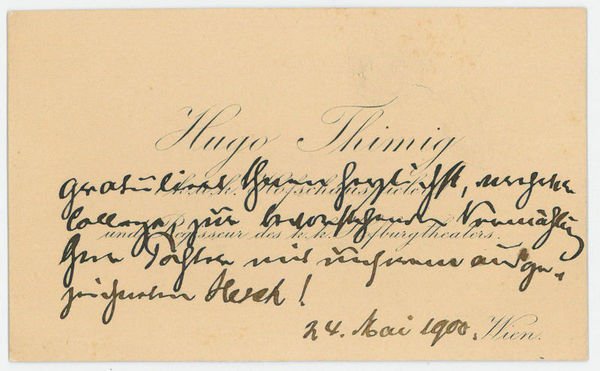 Hugo Thimig
gratulirt Ihnen herzlichst, verehrter
Hofschauspieler
College, zur bevorstehenden Vermählung
und Regisseur des k. k. Hofburgtheaters.
Ihrer Tochter mit unserem ausge-
zeichneten Hesch!
24. Mai 1900. Wien.